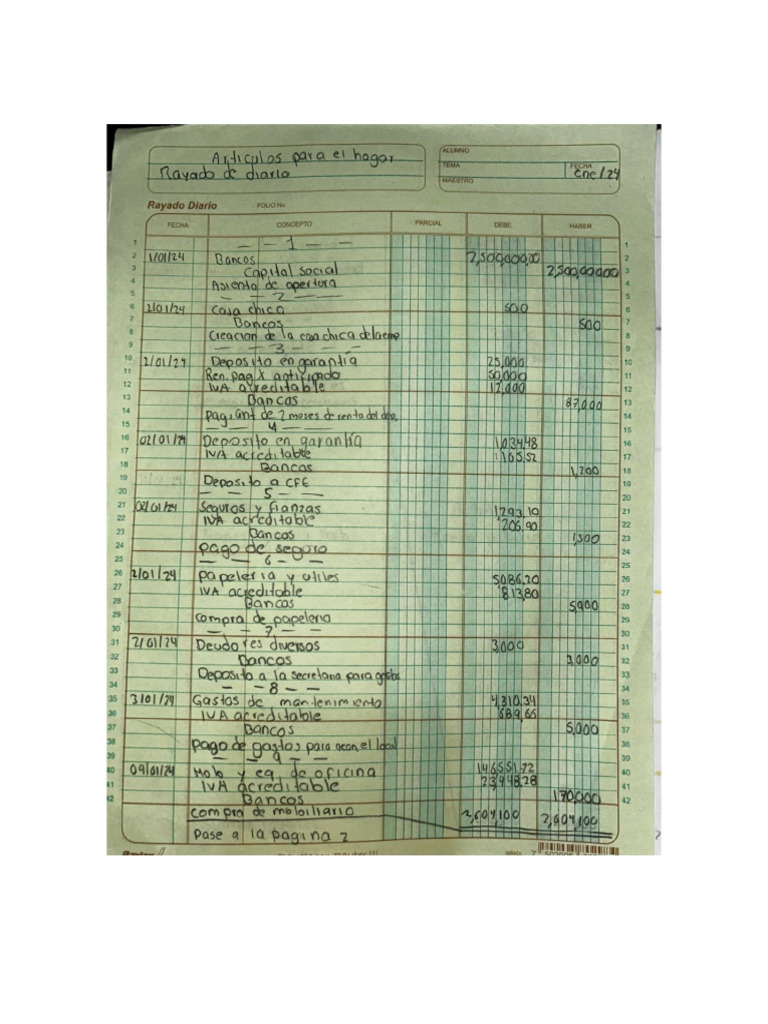 Articulos para el hogar
Rayado de diario
ALUMNO
TEMA FECHA ene/24
MAESTRO
Rayado Diario FOLIO No.
FECHA CONCEPTO PARCIAL DEBE HABER
1 — — 1 — — 1
2 1/01/24 Bancos 2,500,000,00 2
3 Capital social 2,500,000,00 3
4 Asiento de apertura 4
5 — — 2 — — 5
6 2/01/24 Caja chica 500 6
7 Bancos 500 7
8 Creacion de la caja chica de la emp 8
9 — — 3 — — 9
10 2/01/24 Deposito en garantia 25,000 10
11 Ren. pag X anticipado 50,000 11
12 IVA acreditable 12,000 12
13 Bancos 87,000 13
14 Pag. ant de 2 meses de renta del 14
15 — — 4 — — 15
16 02/01/24 Deposito en garantia 1,034.48 16
17 IVA acreditable 165.52 17
18 Bancos 1,200 18
19 Deposito a CFE 19
20 — — 5 — — 20
21 02/01/24 Seguros y fianzas 1,293.10 21
22 IVA acreditable 206.90 22
23 Bancos 1,500 23
24 pago de seguro 24
25 — — 6 — — 25
26 2/01/24 papeleria y utiles 5086.20 26
27 IVA acreditable 813,80 27
28 Bancos 5,900 28
29 compra de papeleria 29
30 — — 7 — — 30
31 2/01/24 Deudores diversos 3,000 31
32 Bancos 3,000 32
33 Deposito a la secretaria para gastos 33
34 — — 8 — — 34
35 3/01/24 Gastos de mantenimiento 4,310.34 35
36 IVA acreditable 689,66 36
37 Bancos 5,000 37
38 pago de gastos para acon. el local 38
39 — — 9 — — 39
40 09/01/24 Mob y eq. de oficina 146551.72 40
41 IVA acreditable 23,448.28 41
42 Bancos 170,000 42
compra de mobiliario 2,604,100 2,604,100
Pase a la pagina 2